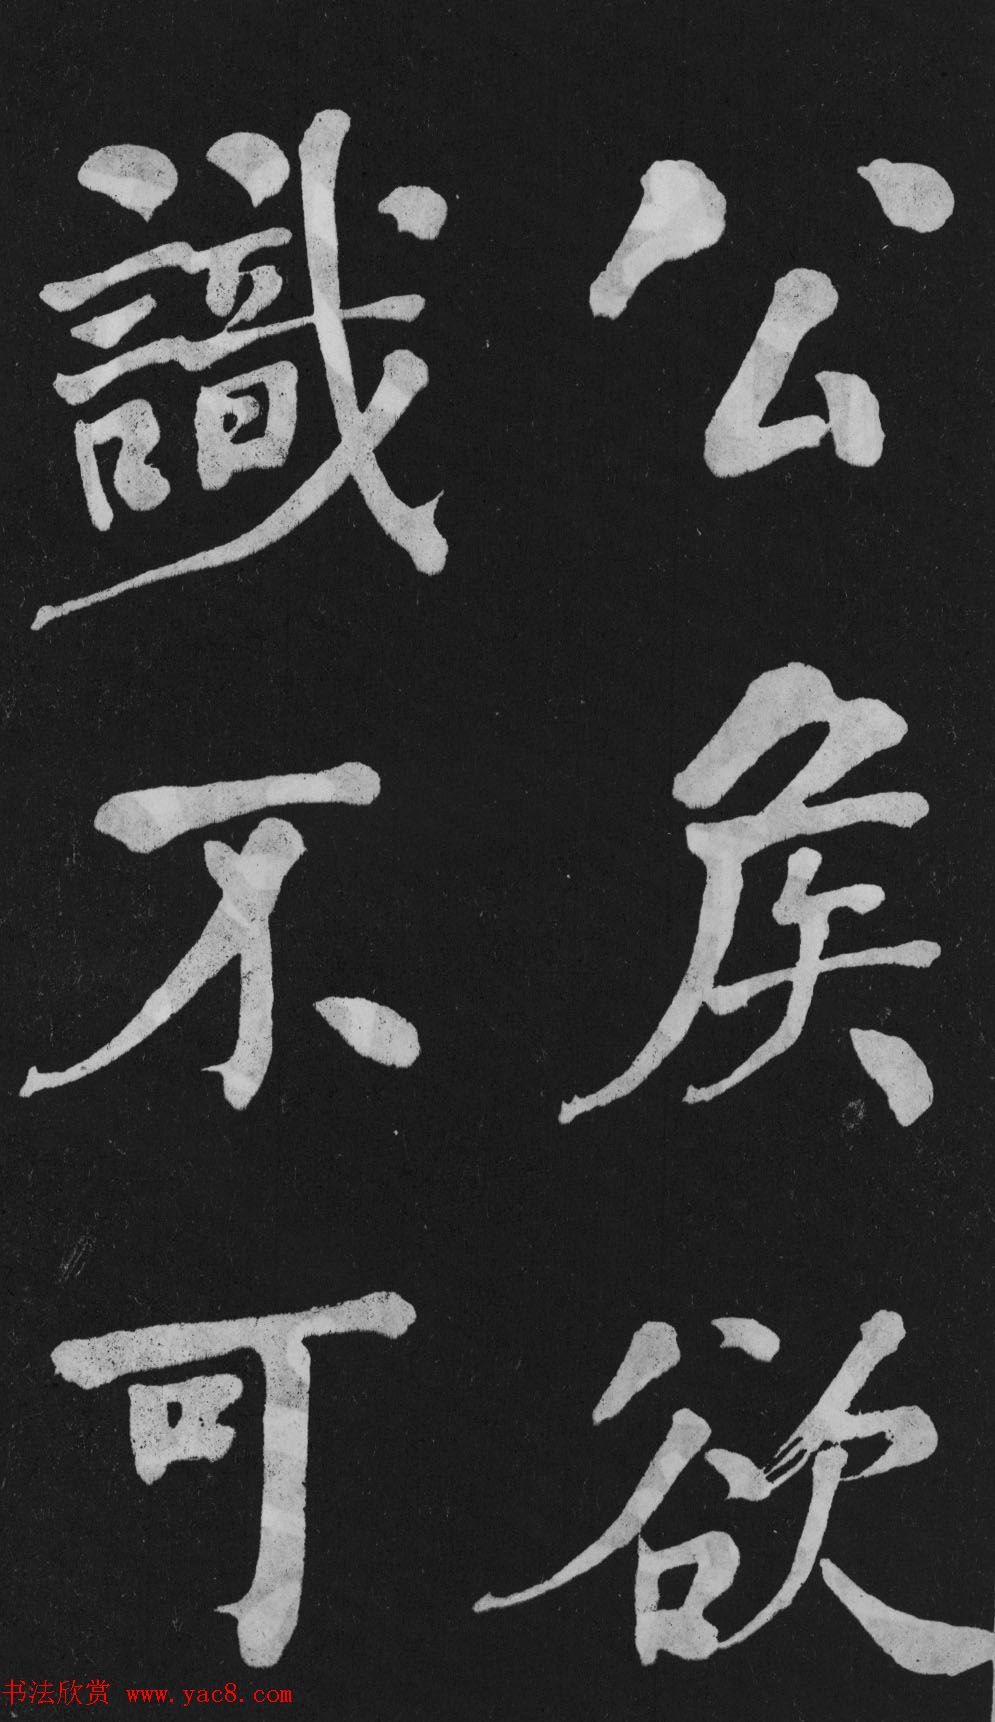 公侯欲
識不可
书法欣赏 www.yac8.com